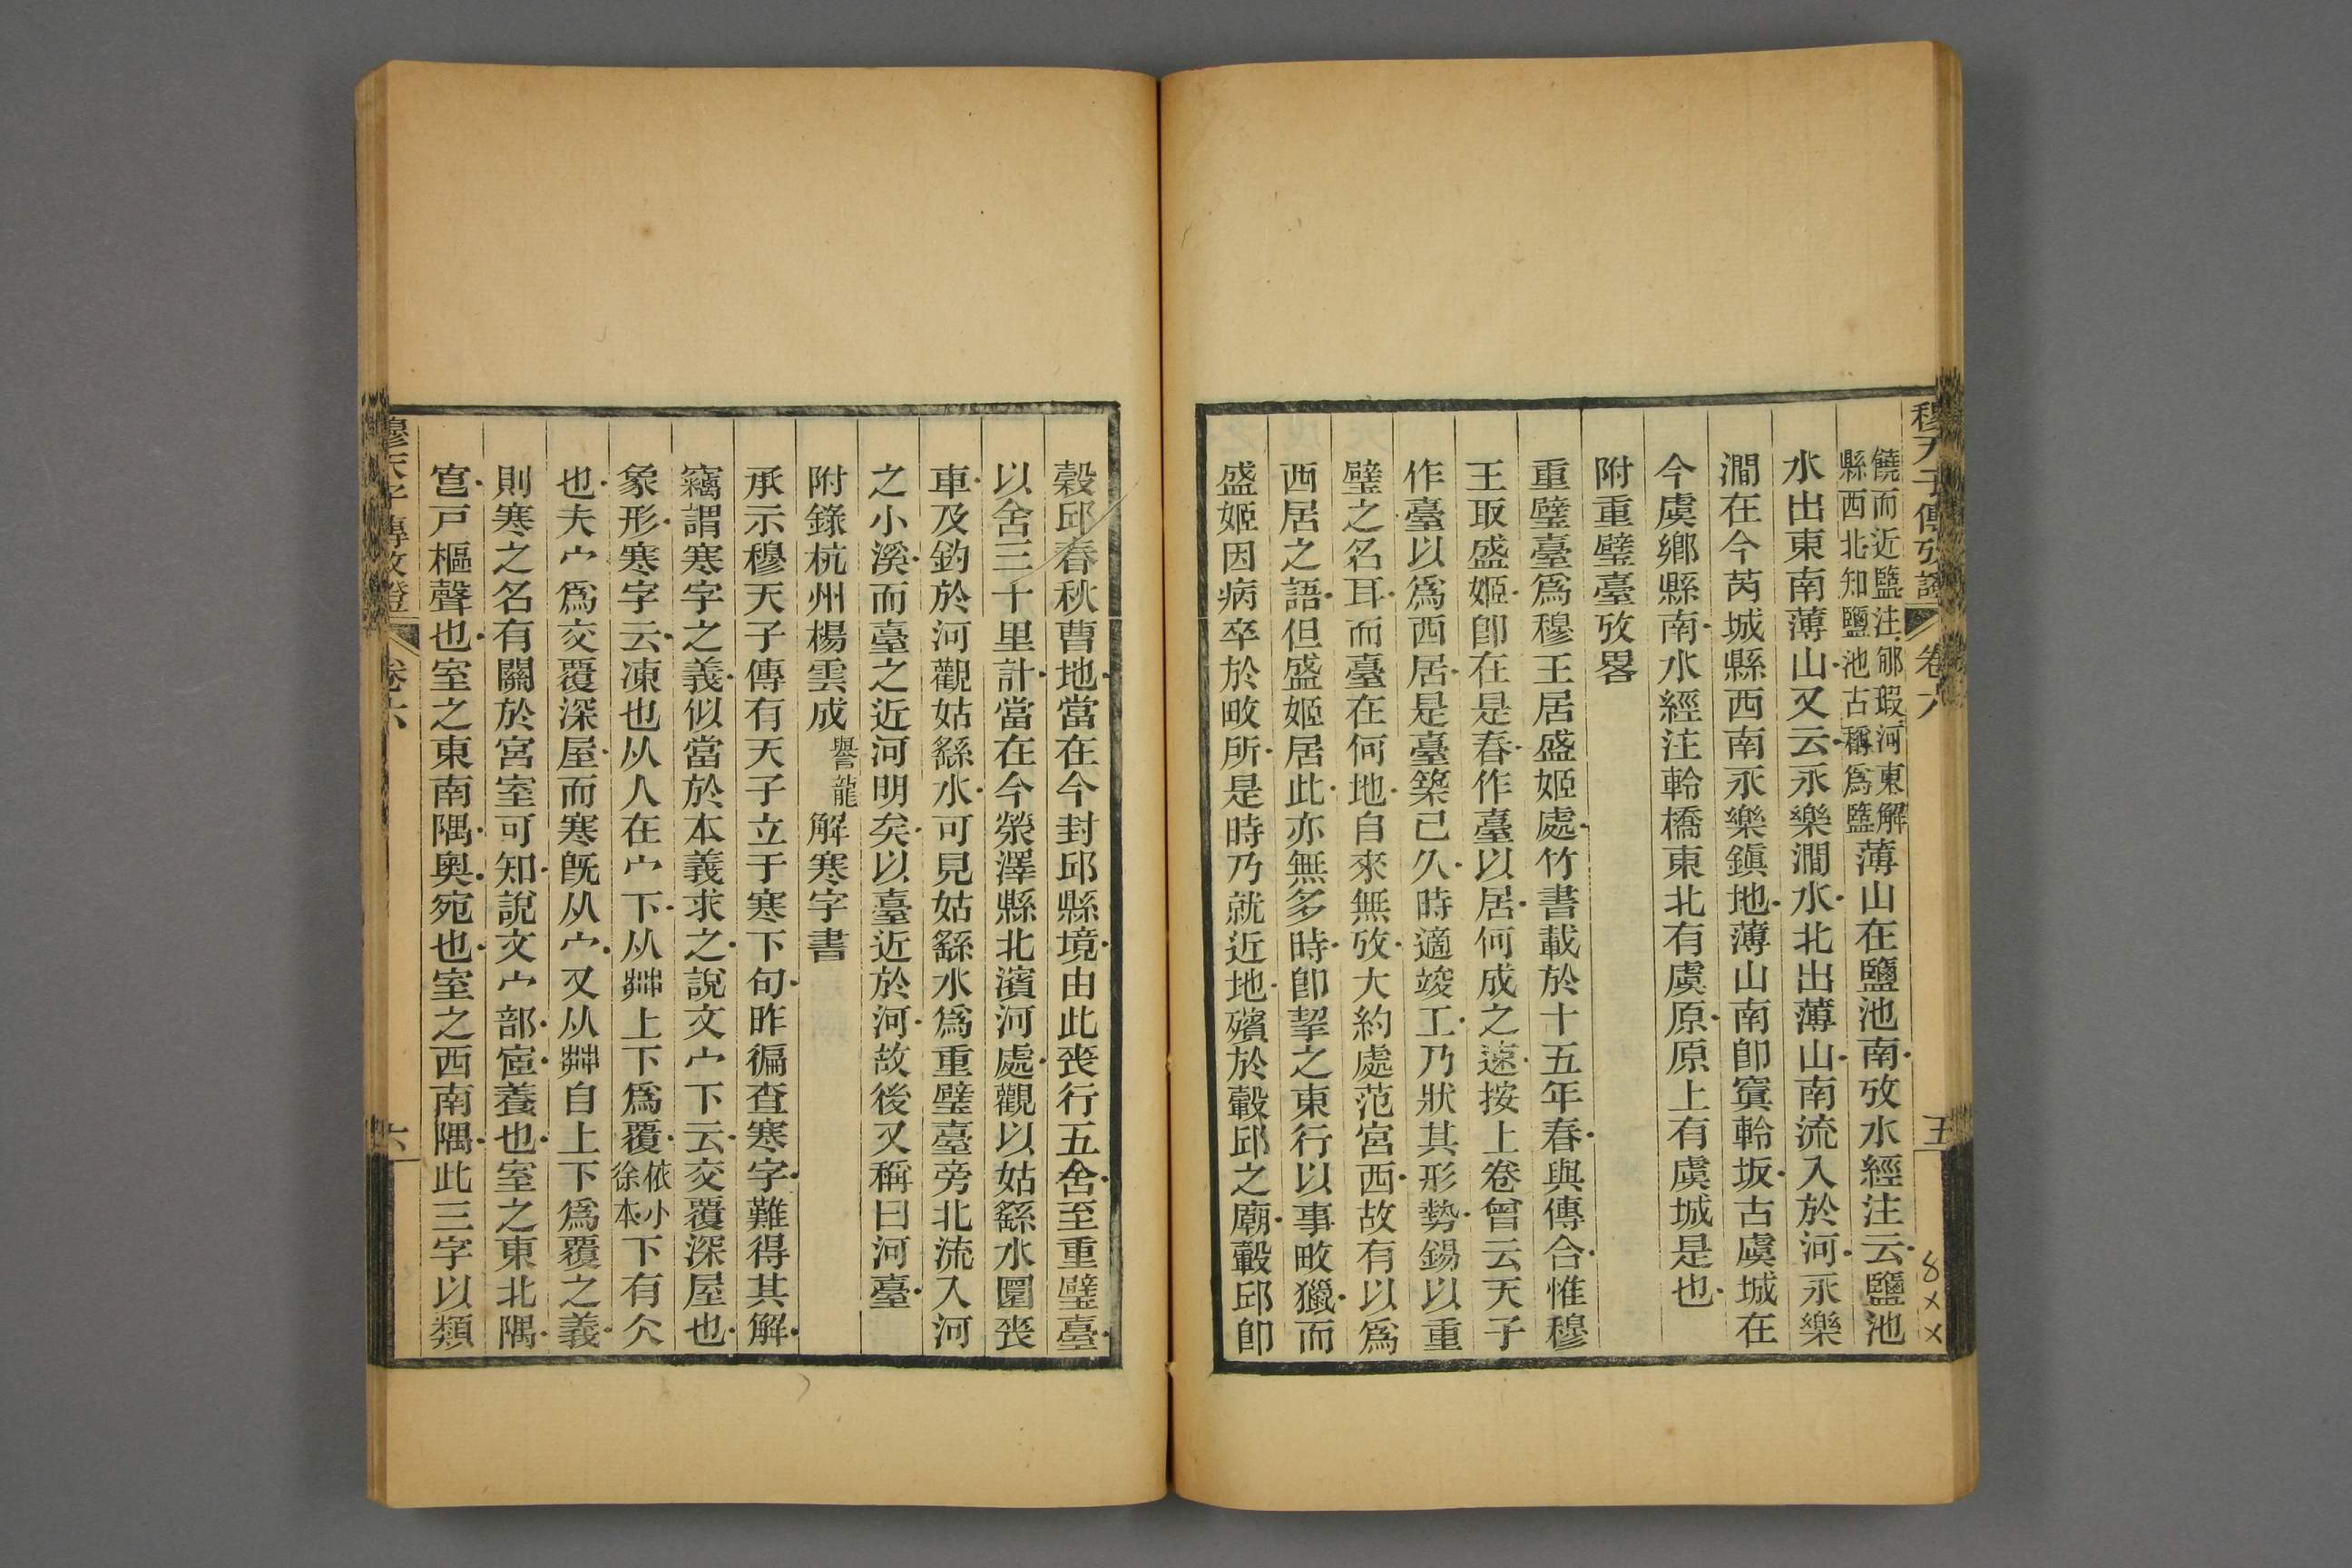 穆天子傳攷證 卷六 五
饒而近盬注郇瑕河東解
縣西北知鹽池古稱爲盬
薄山在鹽池南攷水經注云鹽池
水出東南薄山又云永樂澗水北出薄山南流入於河永樂
澗在今芮城縣西南永樂鎭地薄山南卽窴軨坂古虞城在
今虞鄕縣南水經注軨橋東北有虞原原上有虞城是也
附重璧臺攷畧
重璧臺爲穆王居盛姬處竹書載於十五年春與傳合惟穆
王取盛姬卽在是春作臺以居何成之速按上卷曾云天子
作臺以爲西居是臺築已久時適竣工乃狀其形勢錫以重
璧之名耳而臺在何地自來無攷大約處范宮西故有以爲
西居之語但盛姬居此亦無多時卽挈之東行以事畋獵而
盛姬因病卒於畋所是時乃就近地殯於轂邱之廟轂邱卽
8××
穀邱春秋曹地當在今封邱縣境由此喪行五舍至重璧臺
以舍三十里計當在今滎澤縣北濱河處觀以姑繇水圜喪
車及釣於河觀姑繇水可見姑繇水爲重璧臺旁北流入河
之小溪而臺之近河明矣以臺近於河故後又稱曰河臺
附錄杭州楊雲成譽龍解寒字書
承示穆天子傳有天子立于寒下句昨徧查寒字難得其解
竊謂寒字之義似當於本義求之說文宀下云交覆深屋也
象形寒字云凍也从人在宀下从茻上下爲覆依小徐本下有仌
也夫宀爲交覆深屋而寒旣从宀又从茻自上下爲覆之義
則寒之名有關於宮室可知說文宀部宧養也室之東北隅
宧戸樞聲也室之東南隅奧宛也室之西南隅此三字以類
穆天子傳攷證 卷六 六